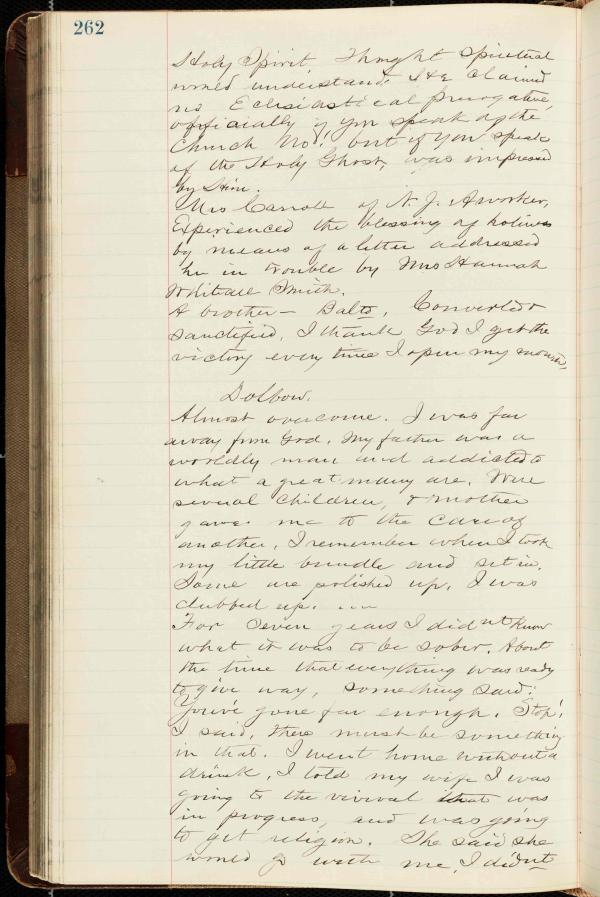 262
Holy Spirit. Thought Spiritual
would understand. He claimed
no Eclsiastical prerogative,
officially if you speak of the
Church No! but if you speak
of the Holy Ghost, was impressed
by Him.
Mrs Carroll of N. J. A worker,
Experienced the blessing of holiness
by means of a letter addressed
her in trouble by Mrs Hannah
Whitall Smith.
A brother - Balto, Converted &
Sanctified, I thank God I get the
victory every time I open my mouth,
Dolbow.
Almost overcome. I was far
away from God. My father was a
worldly man and addicted to
what a great many are. Were
several children, & mother
gave me to the care of
another. I remember when I took
my little bundle and set in.
Some are polished up. I was
clubbed up. ....
For Seven years I didnt know
what it was to be sober. About
the time that everything was ready
to give way, something said:
You've gone far enough. Stop!
I said, there must be something
in that. I went home without a
drink. I told my wife I was
going to the vivival that was
in progress, and was going
to get religion. She said she
would go with me. I didn't